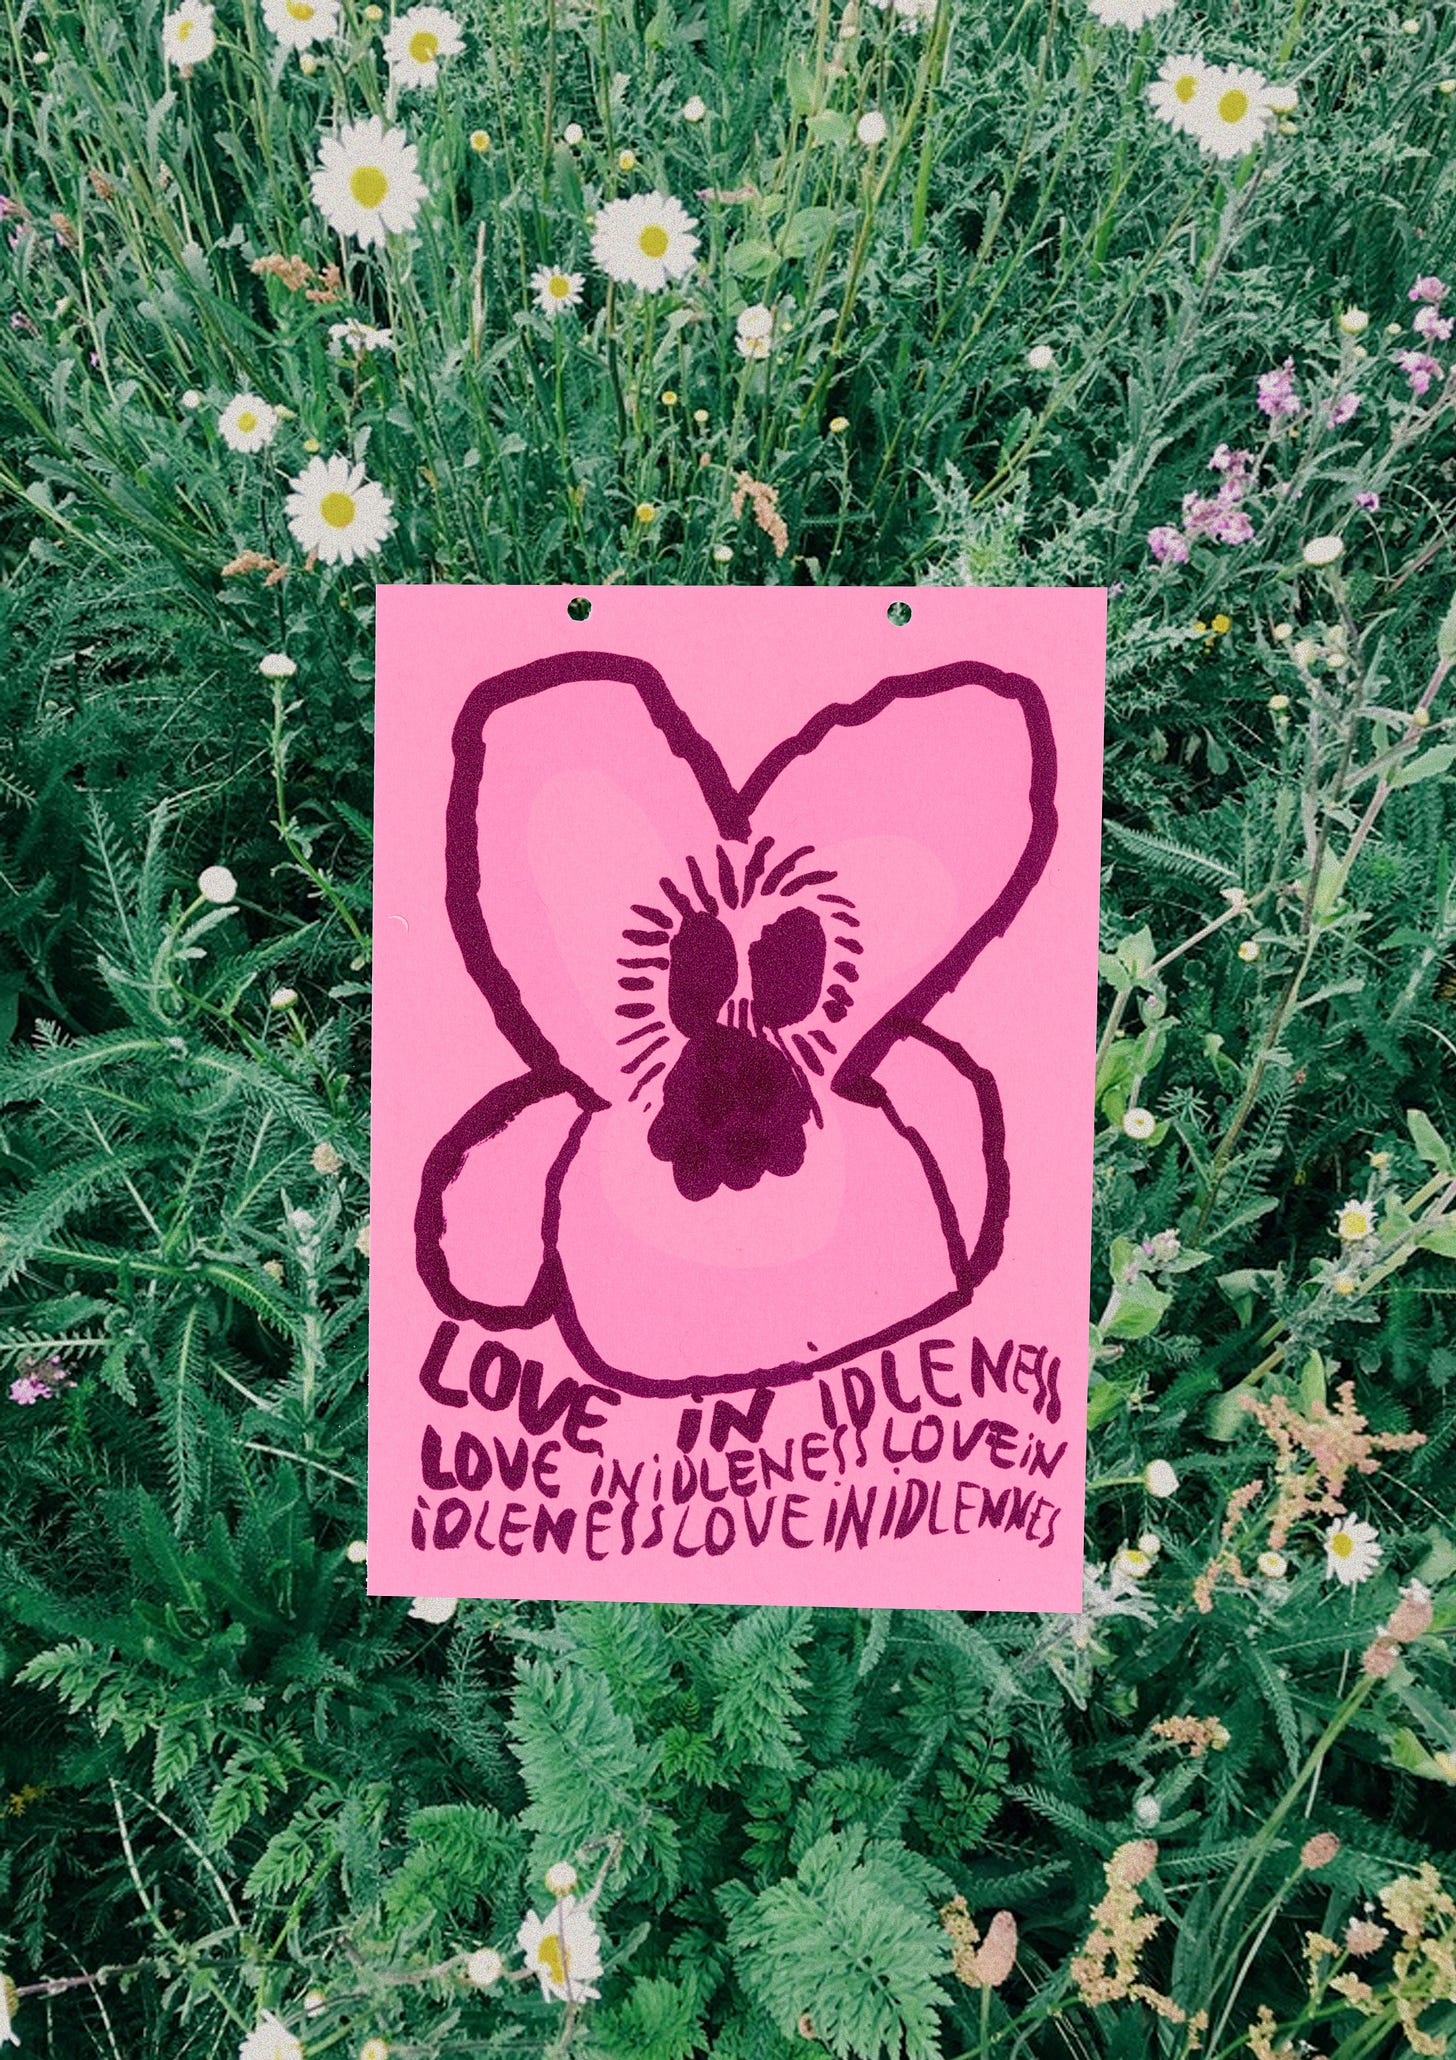 LOVE IN IDLENESS
LOVE IN IDLENESS LOVE IN
IDLENESS LOVE IN IDLENNES